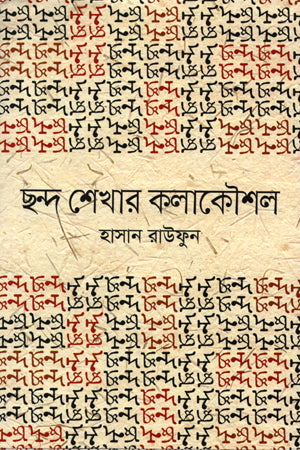 ছন্দ শেখার কলাকৌশল
হাসান রাউফুন